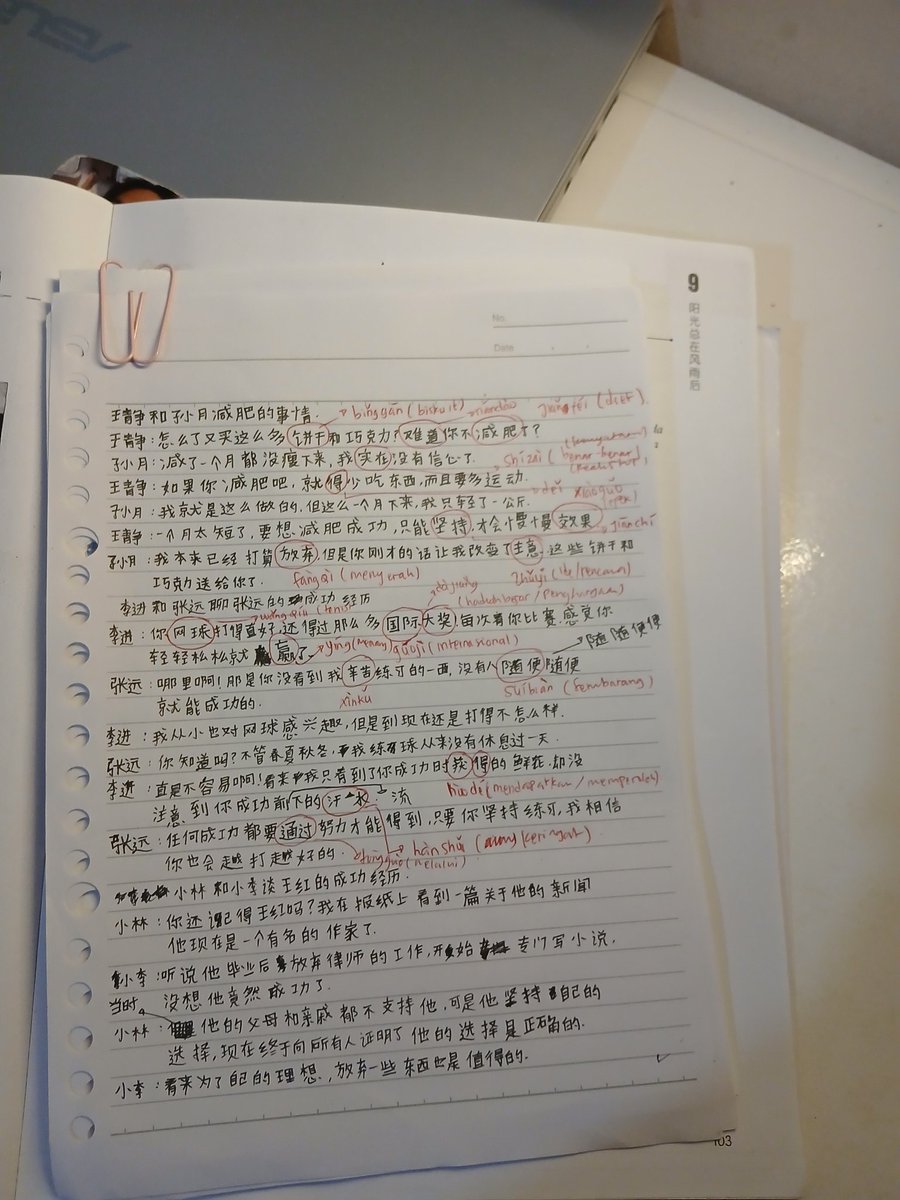 ASUS
9
阳光总在风雨后
No.
Date
王静和孙月减肥的事情. bǐnggān (biskuit) nándào (diet)
王静:怎么了又买这么多饼干和巧克力?难道你不减肥了?
孙月:减了一个月都没瘦下来,我实在没有信心了. shízài (benar-benar)
王静:如果你减肥吧,就得少吃东西,而且要多运动.
děi xiàoguǒ
孙月:我就是这么做的.但这么一个月下来,我只轻了一公斤.
王静:一个月太短了,要想减肥成功,只能坚持,才会慢慢效果 jiānchí
孙月:我本来已经打算放弃,但是你刚才的话让我改变了主意.这些饼干和
巧克力送给你了. fàngqì (menyerah) zhǔyi (ide/rencana)
李进和张远聊张远的成功经历 dàjiǎng (hadiah besar/penghargaan)
wǎngqiú (tenis)
李进:你网球打得真好,还得过那么多国际大奖!每次看你比赛,感觉你
轻轻松松就赢了. yíng (menang) guójì (internasional) 随随便便
张远:哪里啊!那是你没看到我辛苦练习的一面,没有人随便随便
就能成功的. xīnkǔ suíbiàn (sembarang)
李进:我从小也对网球感兴趣,但是到现在还是打得不怎么样.
张远:你知道吗?不管春夏秋冬,我练球从来没有休息过一天.
李进:真是不容易啊!看来我只看到了你成功时获得的鲜花,却没
注意到你成功前下的汗水 流 huòdé (mendapatkan/memperoleh)
张远:任何成功都要通过努力才能得到,只要你坚持练习,我相信
你也会越打越好的. tōngguò (melalui) hànshuǐ
小林和小李谈王红的成功经历.
小林:你还记得王红吗?我在报纸上看到一篇关于他的新闻
他现在是一个有名的作家了.
小李:听说他毕业后放弃律师的工作,开始专门写小说,
没想他竟然成功了.
当时
小林:他的父母和亲戚都不支持他,可是他坚持自己的
选择,现在终于向所有人证明了他的选择是正确的.
小李:看来为了自己的理想,放弃一些东西也是值得的.
103